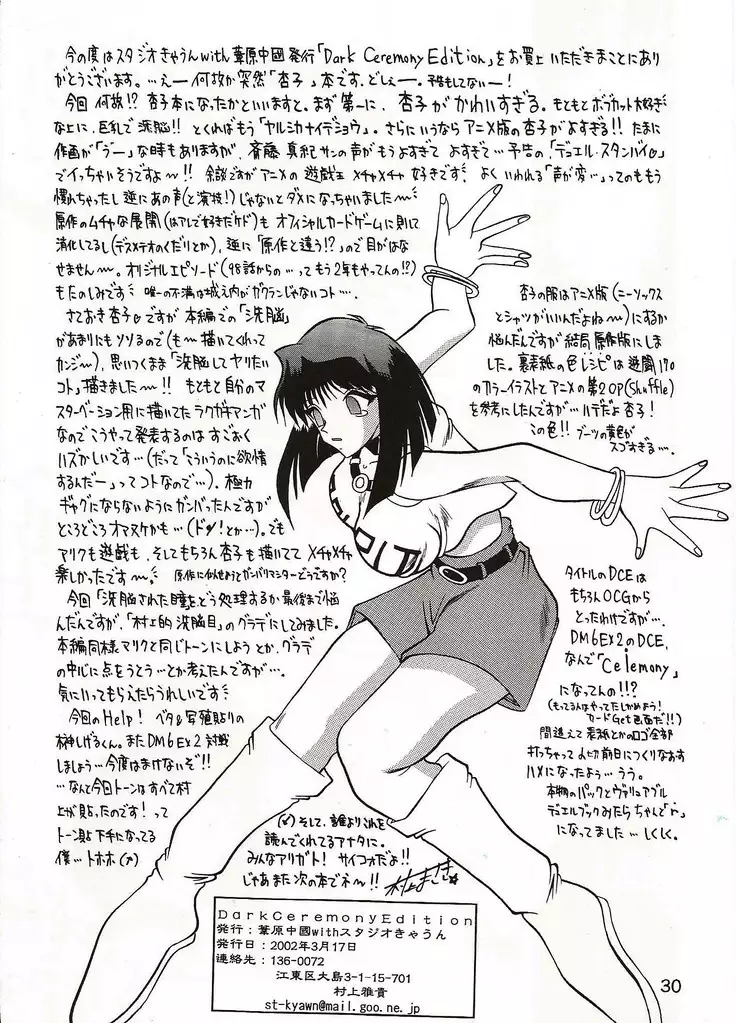 今の度はスタジオきゃうんwith葦原中國発行「Dark Ceremony Edition」をお買上いただきまことにあり
がとうございます。…えー何故か突然「杏子」本です、どしぇー。予告もしてないー!
今回何故!?杏子本になったかといいますと。まず第一に、杏子がかわいすぎる。もともとボブカット大好き
な上に、巨乳で洗脳!!とくればもう「ヤルシカナイデショウ」。さらにいうならアニメ版の杏子がよすぎる!!たまに
作画が「ゔー」な時もありますが、斉藤真紀サンの声がもうよすぎてよすぎて…予告の、「デュエル・スタンバイ♡」
でイッちゃいそうですよ〜!!余談ですがアニメの遊戯王メチャメチャ好きです。よくいわれる「声が変…」ってのももう
慣れちゃったし逆にあの声(と演技!)じゃないとダメになっちゃいました〜
原作のムチャな展開(はアレで好きだケド)もオフィシャルカードゲームに則して
消化してるし(デスメテオのくだりとか)、逆に「原作と違う!?」ので目がはな
せません〜。オリジナルエピソード(98話からの…ってもう2年もやってんの!?)
もたのしみです 唯一の不満は城之内がガクランじゃないコト…。
さておき杏子♡ですが本編での「洗脳」
があまりにもソソるので(も〜描いてくれって
カンジ〜)、思いつくまま「洗脳してヤりたい
コト」描きました〜!!もともと自分のマ
スターベーション用に描いてたラクガキマンガ
なのでこうやって発表するのはすごおく
ハズかしいです…(だって「こういうのに欲情
するんだー」ってコトなので…)。極力
ギャグにならないようにガンバったんですが
ところどころオマヌケかも…(ドン!とか…)。でも
マリクも遊戯も、そしてもちろん杏子も描いててメチャメチャ
楽しかったです〜。原作に似せようとガンバリマシターどうですか?
今回「洗脳された瞳をどう処理するか最後まで悩
んだんですが、「村上的洗脳目」のグラデにしてみました。
本編同様マリクと同じトーンにしようとか、グラデ
の中心に点をうとう…とか考えたんですが…。
気にいってもらえたらうれしいです
今回のHelp! ベタ&写殖貼りの
榊しげるくん。またDM6Ex2対戦
しましょう…今度はまけないぞ!!
…なんと今回トーンはすべて村
上が貼ったのです!って
トーン貼下手になってる
僕…トホホ(↗)
杏子の服はアニメ版(ニーソックス
とシャツがいいんだよね〜)にするか
悩んだんですが結局原作版にしま
した。裏表紙の色レシピは遊闘170
のカラーイラストとアニメの第2OP(Shuffle)
を参考にしたんですが…ハデだよ杏子!
この色!!ブーツの黄色が
スゴすぎる…。
タイトルのDCEは
もちろんOCGから
とったわけですが…
DM6Ex2のDCE、
なんで「Celemony」
になってんの!!?
(もってる人はやってたしかめよう!
カードGet画面だ!!)
間違えて表紙とかのロゴ全部
打っちゃって〆切前日につくりなおす
ハメになったよぅ…うう。
本物のパックとヴァリュアブル
デュエルブックみたらちゃんと「r」
になってました…しくしく。
(↙)そして、誰よりこれを
読んでくれてるアナタに。
みんなアリガト!サイコォだよ!!
じゃあまた次の本でネ〜!!
村上まさき☆
DarkCeremonyEdition
発行:葦原中國withスタジオきゃうん
発行日:2002年3月17日
連絡先:136-0072
江東区大島3-1-15-701
村上雅貴
st-kyawn@mail.goo.ne.jp
30